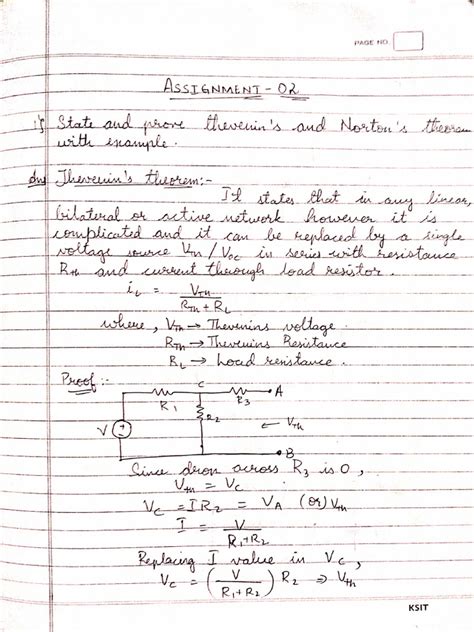 PAGE NO.
ASSIGNMENT - 02
1) State and prove thevenin's and Norton's theorem
with example.
Ans) Thevenin's theorem:-
It states that in any linear,
bilateral or active network however it is
complicated and it can be replaced by a single
voltage source Vth / Voc in series with resistance
Rth and current through load resistor.
iL = VTh / RTh + RL
where, VTh → Thevenins voltage.
RTh → Thevenins Resistance
RL → Load resistance.
Proof :-
C
A
R1
R3
R2
V
← VTh
B
Since drop across R3 is 0,
Vth = Vc
Vc = IR2 = VA (or) Vth
I = V / R1+R2
Replacing I value in Vc,
Vc = (V / R1+R2) R2 ⇒ Vth
KSIT